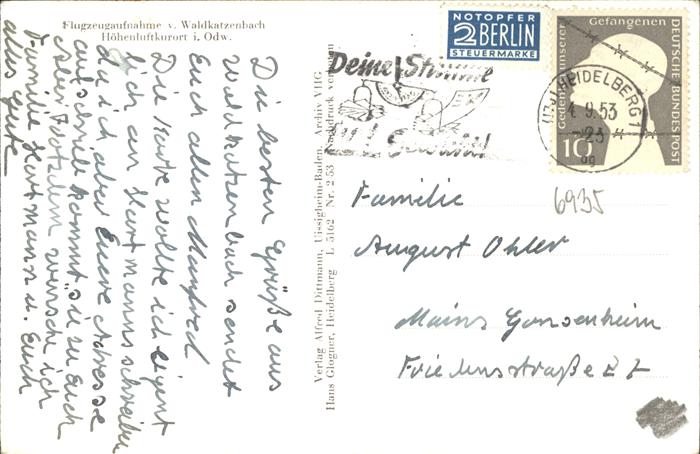 Flugzeugaufnahme v. Waldkatzenbach
Höhenluftkurort i. Odw.
Die besten Grüße aus
Waldkatzenbach sendet
Euch allen Manfred
Die Karte wollte ich eigent
lich an Hartmanns schreiben
da ich aber Euere Adresse
aufschrieb kommt sie zu Euch
Aber trotzdem wünsche ich
Familie Hartmann u. Euch
alles Gute
Verlag Alfred Dittmann, Uissigheim-Baden, Archiv VHG
Hans Glogner, Heidelberg L 5162 Nr. 2 53 Nachdruck verboten
Deine Stimme
NOTOPFER
2 BERLIN
STEUERMARKE
Gedenket unserer Gefangenen
DEUTSCHE BUNDESPOST
10
HEIDELBERG 1
9.53
Familie
August Ohler
Mainz Gonsenheim
Friedensstraße
6935